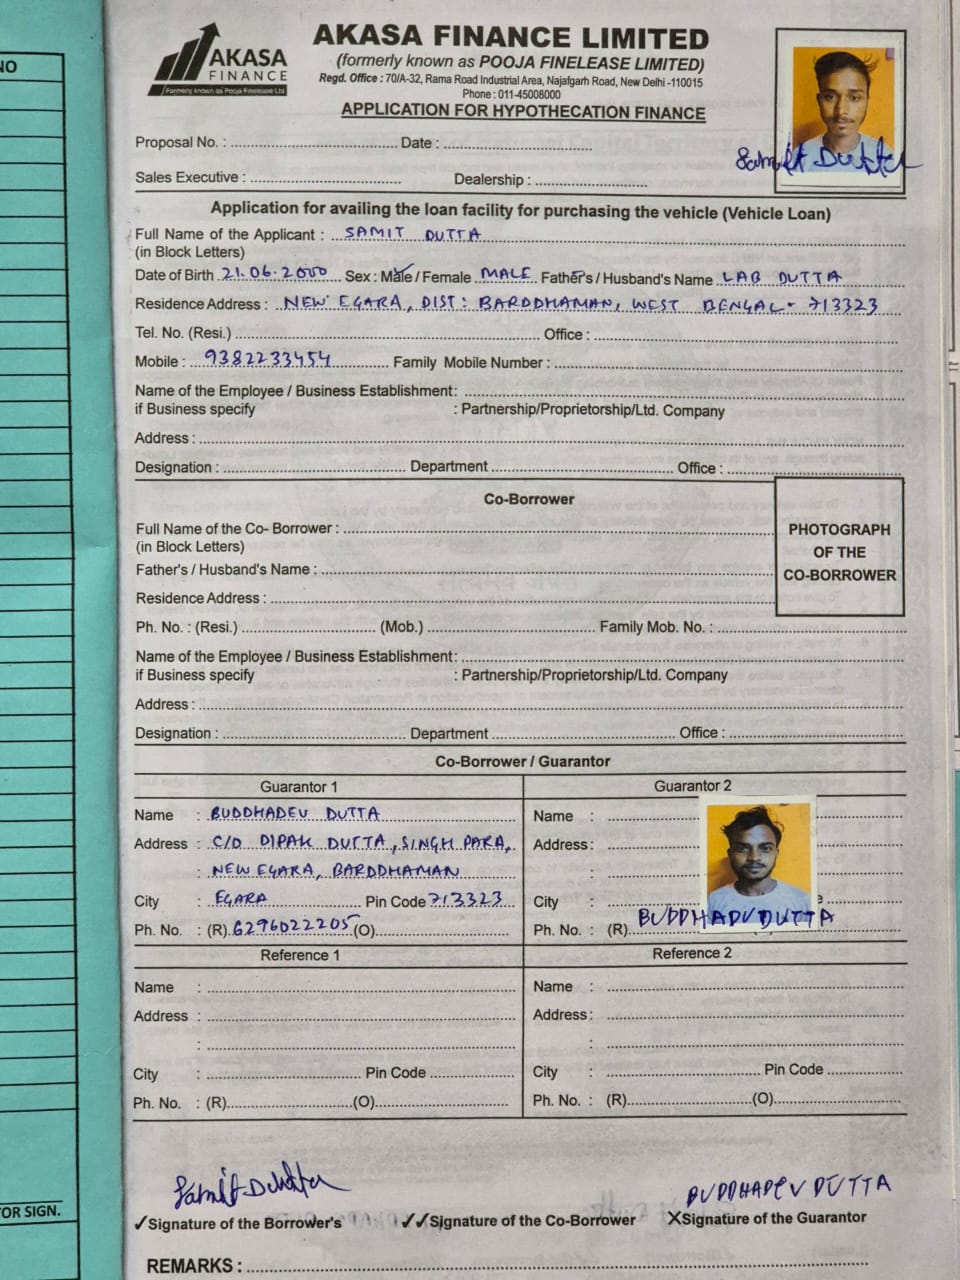 NO
AKASA
FINANCE
Formerly known as Pooja Finelease Ltd
AKASA FINANCE LIMITED
(formerly known as POOJA FINELEASE LIMITED)
Regd. Office : 70/A-32, Rama Road Industrial Area, Najafgarh Road, New Delhi -110015
Phone : 011-45008000
APPLICATION FOR HYPOTHECATION FINANCE
Samit Dutta
Proposal No. : Date :
Sales Executive : Dealership :
Application for availing the loan facility for purchasing the vehicle (Vehicle Loan)
Full Name of the Applicant : SAMIT DUTTA
(in Block Letters)
Date of Birth 21.06.2000 Sex : Male / Female MALE Father's / Husband's Name LAB DUTTA
Residence Address : NEW EGARA, DIST: BARDDHAMAN, WEST BENGAL - 713323
Tel. No. (Resi.) Office :
Mobile : 9382233454 Family Mobile Number :
Name of the Employee / Business Establishment:
if Business specify : Partnership/Proprietorship/Ltd. Company
Address :
Designation : Department Office :
Co-Borrower
PHOTOGRAPH
OF THE
CO-BORROWER
Full Name of the Co- Borrower :
(in Block Letters)
Father's / Husband's Name :
Residence Address :
Ph. No. : (Resi.) (Mob.) Family Mob. No. :
Name of the Employee / Business Establishment:
if Business specify : Partnership/Proprietorship/Ltd. Company
Address :
Designation : Department Office :
Co-Borrower / Guarantor
Guarantor 1 Guarantor 2
Name : BUDDHADEV DUTTA Name :
Address : C/O DIPAK DUTTA, SINGH PARA, Address :
: NEW EGARA, BARDDHAMAN :
City : EGARA Pin Code 713323 City :
BUDDHADV DUTTA
Ph. No. : (R) 6296022205 (O) Ph. No. : (R)
Reference 1 Reference 2
Name : Name :
Address : Address :
: :
City : Pin Code City : Pin Code
Ph. No. : (R) (O) Ph. No. : (R) (O)
Samit Dutta BUDDHADEV DUTTA
✓Signature of the Borrower's ✓✓Signature of the Co-Borrower XSignature of the Guarantor
OR SIGN.
REMARKS :